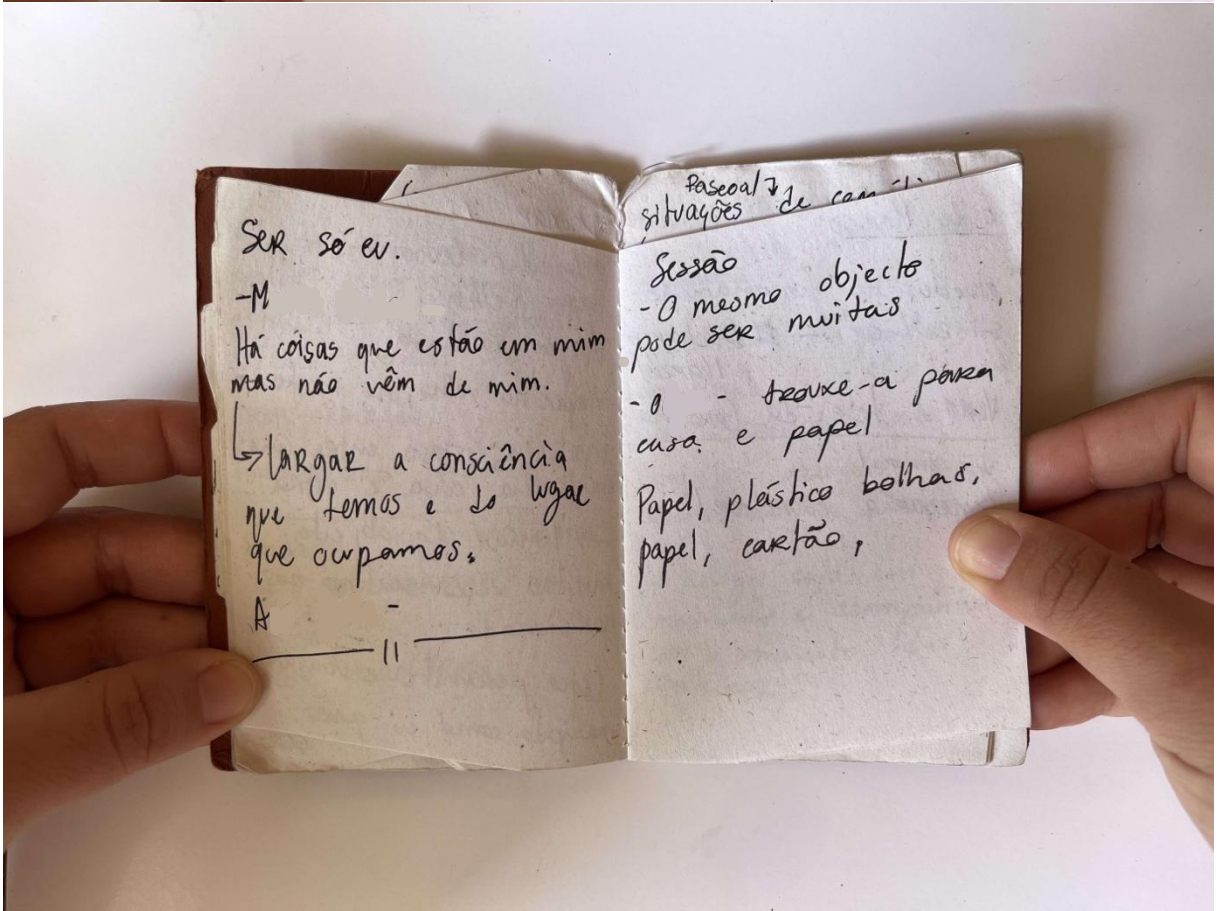 Ser só eu.
-M
Há coisas que estão em mim
mas não vêm de mim.
↳ largar a consciência
que temos e do lugar
que ocupamos.
A -
Pascoal ↓
situações de
Sessão
- O mesmo objecto
pode ser muitas
- o - trouxe-a para
casa e papel
Papel, plástico bolhas,
papel, cartão,